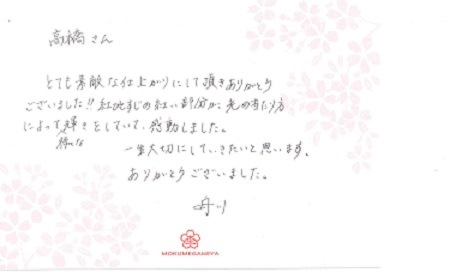 高橋さん
とても素敵な仕上がりにして頂きありがとう
ございました!! 紅地まじの紅い部分が、光の当たり方
によって輝きをしていて、感動しました。
綺麗な
一生大切にしていきたいと思います。
ありがとうございました。
MOKUMEGANEYA